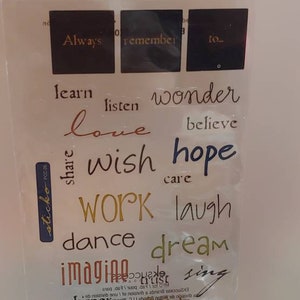 Always remember to...
learn
listen
wonder
love
believe
share
wish
hope
care
WORK
laugh
sticko
dance
dream
imagine
trust
sing